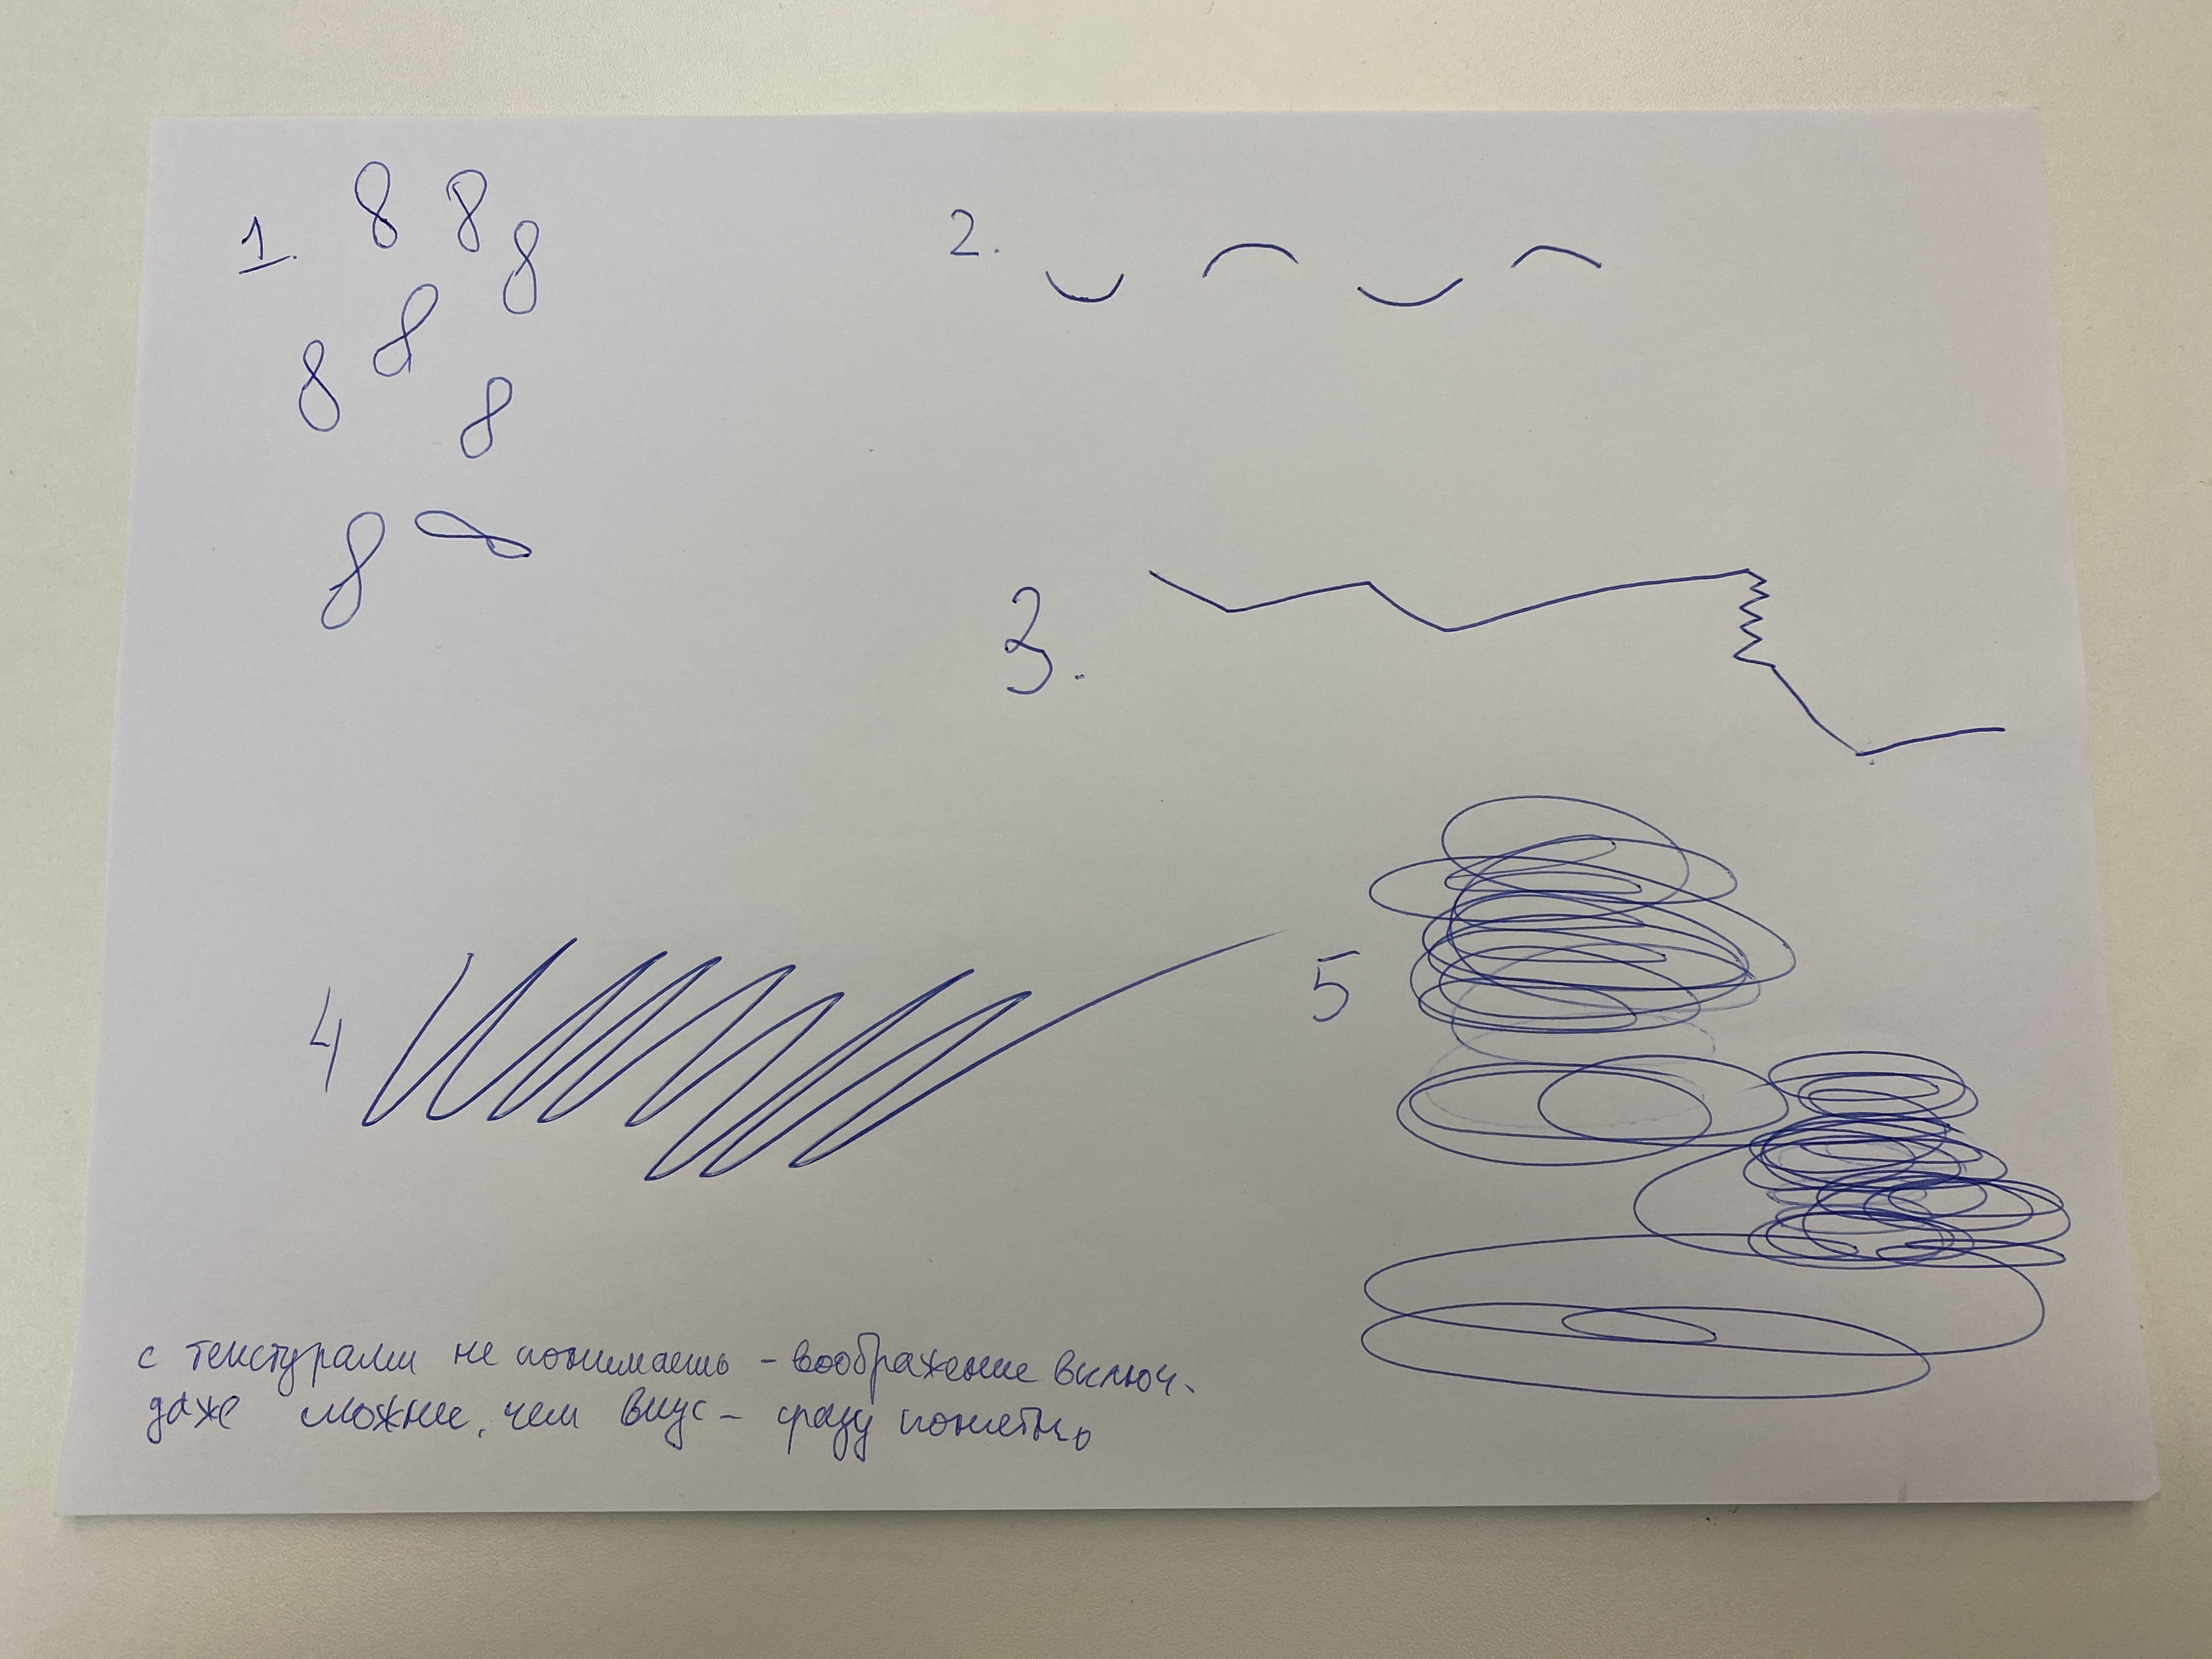 1. 8 8 8
8 8
8
8 8
2.
3.
4
5
с текстурами не понимаешь - воображение включ.
даже можне, чем вкус - сразу понятно